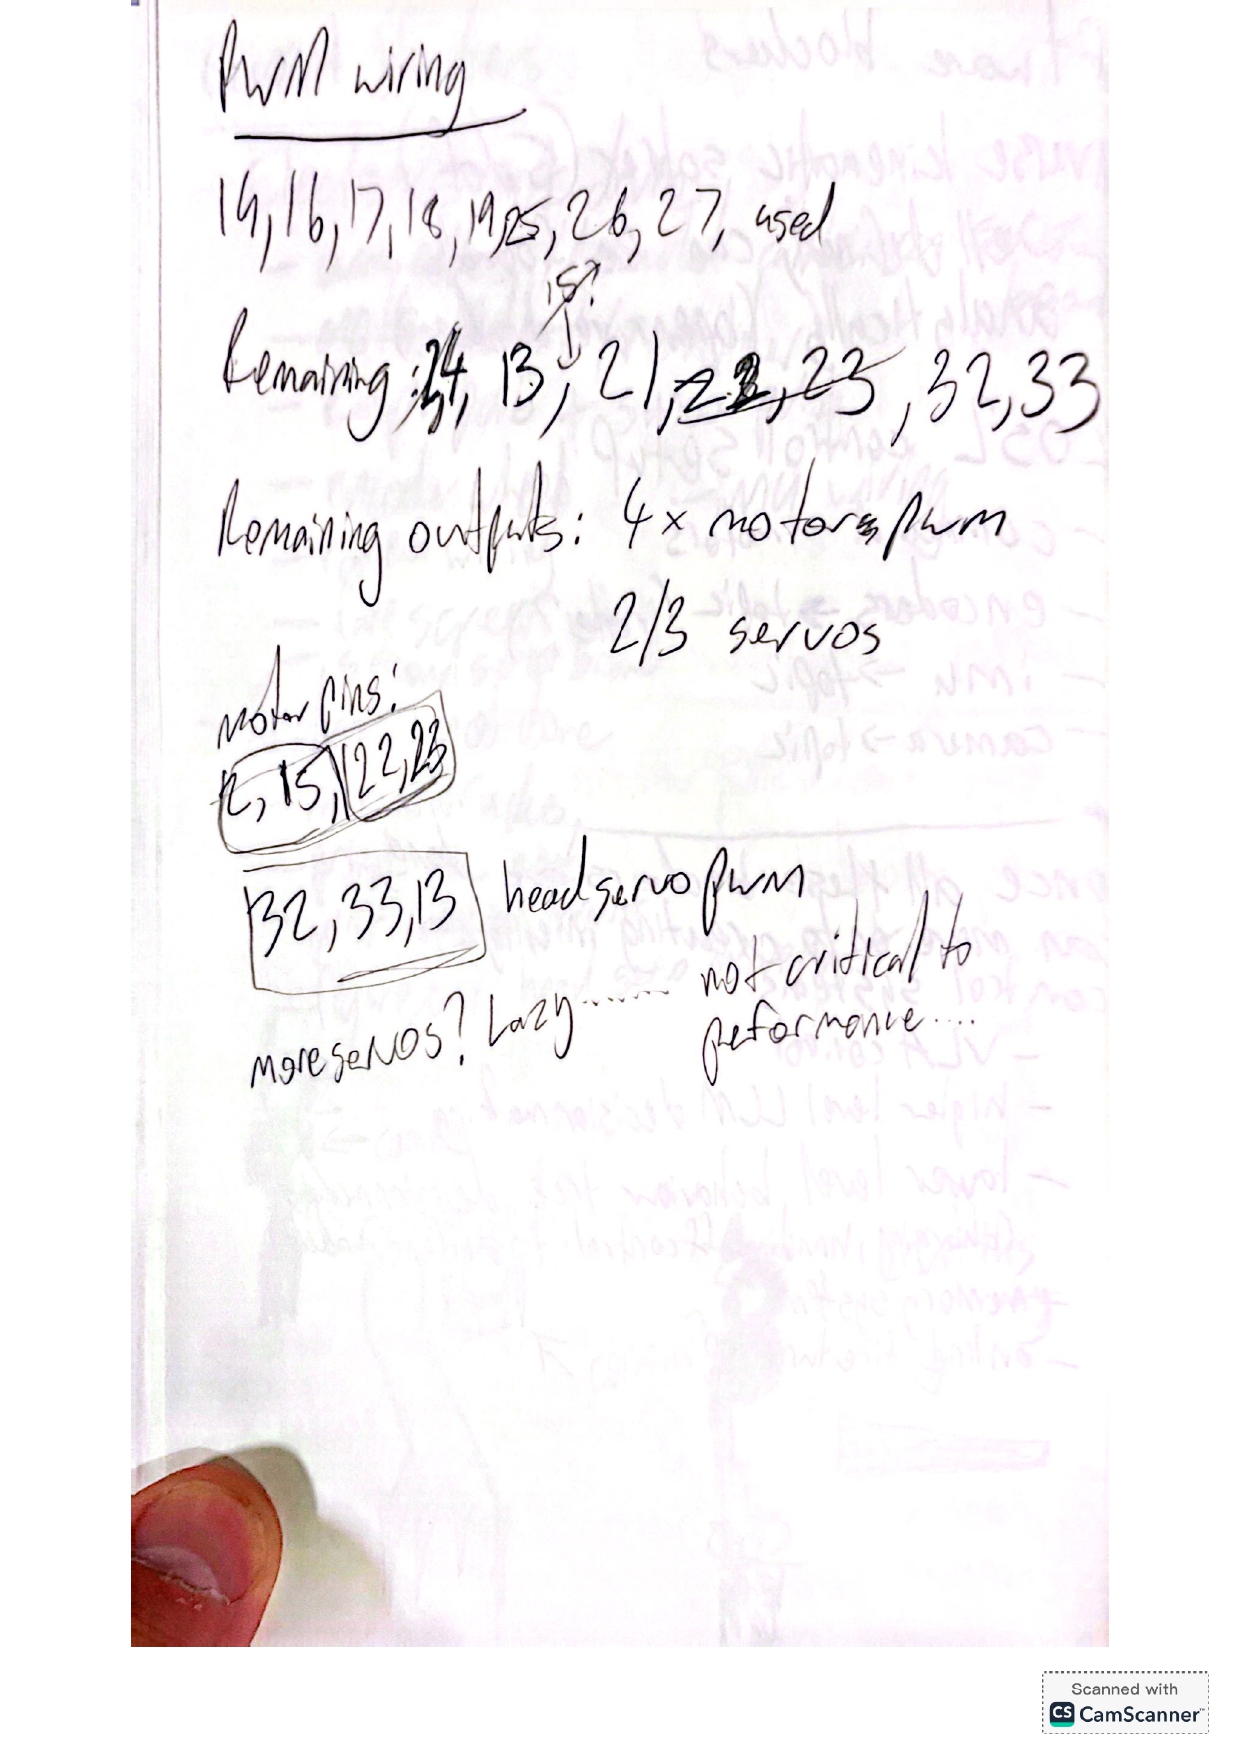 PWM wiring
14, 16, 17, 18, 19, 25, 26, 27, used
15?
Remaining: 13, 21, 22, 23, 32, 33
Remaining outputs: 4x motors pwm
2/3 servos
motor pins:
2, 15, 22, 23
32, 33, 13 head servo pwm
not critical to
more servos? Lazy........
performance....
Scanned with
CS CamScanner